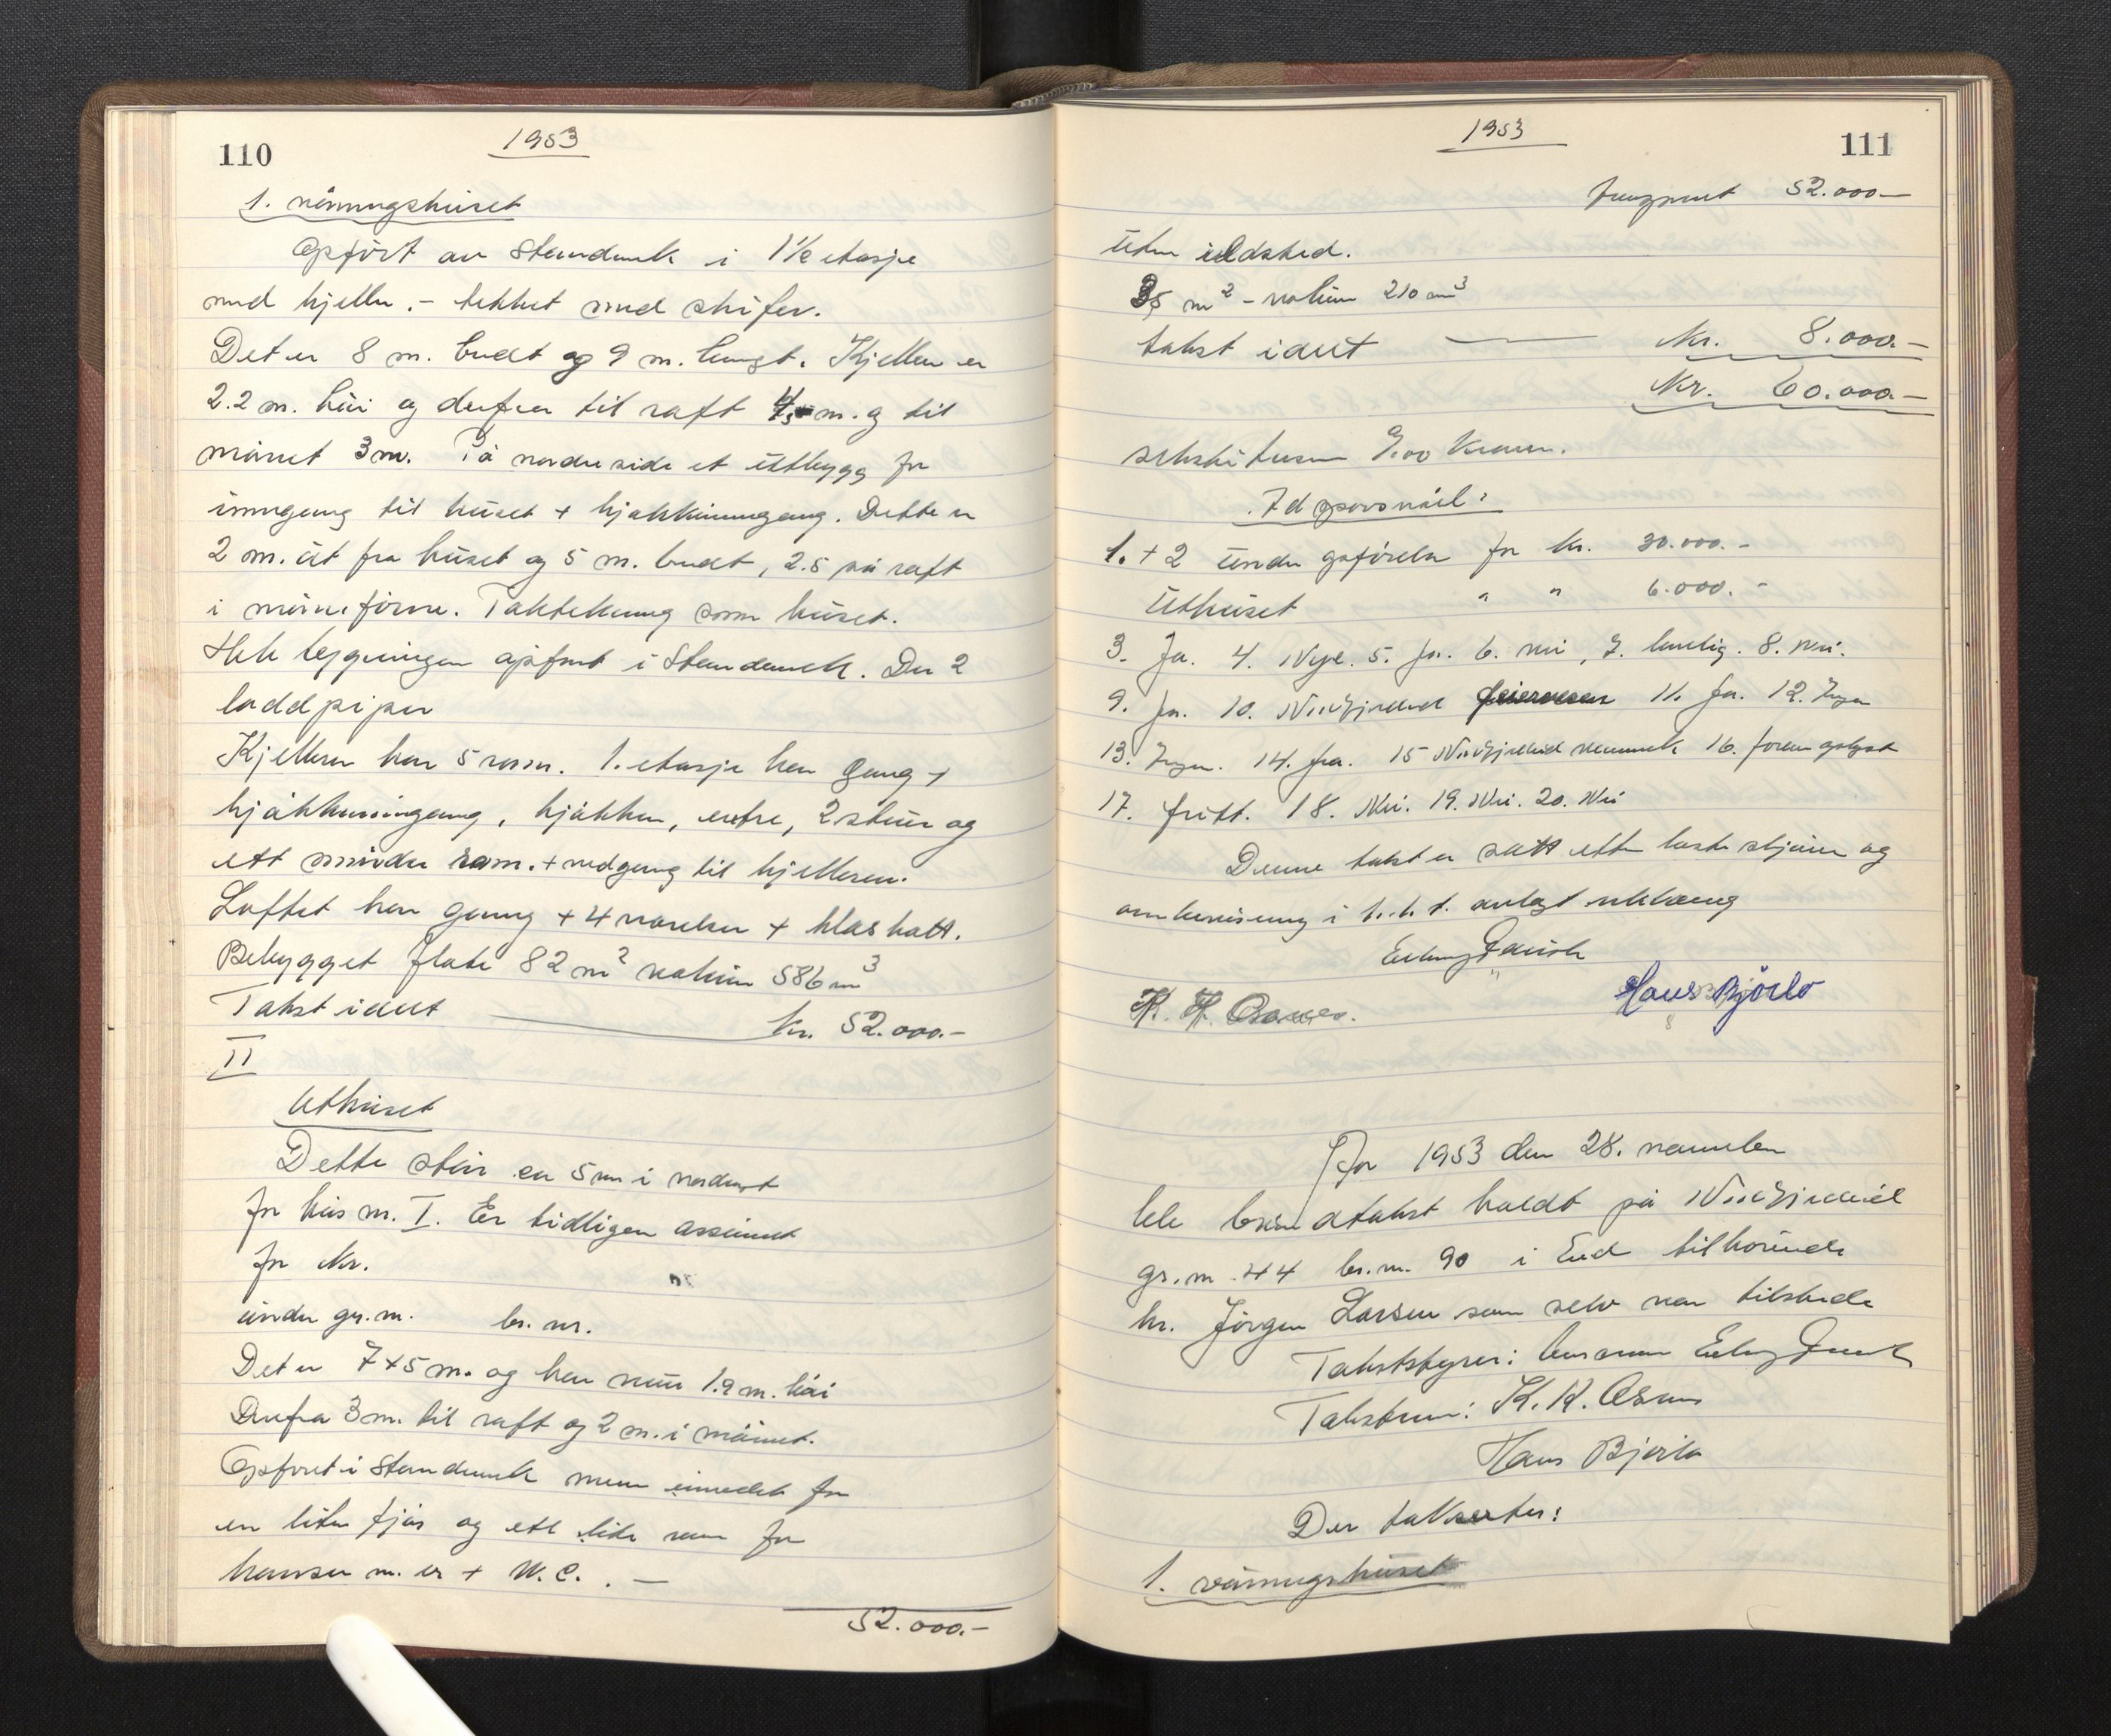 110
1953
1. våningshuset
Opført av Stenderverk i 1½ etasje
med kjeller. - tekket med skifer.
Det er 8 m. bredt og 9 m. langt. Kjeller er
2.2 m. høi og derfra til raft 4,5 m. og til
mønet 3 m. På nordre side et utbygg for
inngang til huset + kjøkkeninngang. Dette er
2 m. ut fra huset og 5 m. bredt, 2.5 på raft
i møneform. Taktekning som huset.
Hele bygningen opført i Stenderverk. Der 2
loddpiper
Kjelleren har 5 rom. 1. etasje har gang +
kjøkkeninngang, kjøkken, entre, 2 stuer og
ett mindre rom. + nedgang til kjelleren.
Loftet har gang + 4 værelser + klæskott.
Bebygget flate 82 m² volum 586 m³
Takst idnt kr. 52.000.-
II
Uthuset
Dette står en 5 m i nordvest
for hus nr. I. Er tidligere assurert
for Kr.
under gr. nr. br. nr.
Det er 7 x 5 m. og har mur 1.9 m. høi
Derfra 3 m. til raft og 2 m. i mønet.
Opført i Stenderverk men innredet for
en liten fjøs og ett lite rom for
hønser m. er + W.C. . -
52.000.-
1953
111
52.000.-
Uten ildsted.
35 m² - volum 210 m³
takst idnt Kr. 8.000.-
Kr. 60.000.-
Idspørsmål:
1. + 2 Under opførelse for kr. 30.000.-
Uthuset " " 6.000.-
3. Ja. 4. Nye. 5. Ja. 6. nei, 7. 8. Nei.
9. Ja. 10. 11. Ja. 12. Ingen
13. Ingen. 14. Ja. 15 16.
17. fritt. 18. Nei. 19. Nei. 20. Nei
Denne takst er satt etter beste skjønn og
overbevisning i h.h.t. avlagt erklæring
Hans Bjørlo
År 1953 den 28. november
ble branntakst holdt på
gr. nr. 44 br. nr. 90 i Eid tilhørende
hr. Jörgen Larsen som selv var tilstede
Takstbestyrer: lensmann
Takstmenn: K. K.
Hans Bjørlo
Der taksertes:
1. våningshuset